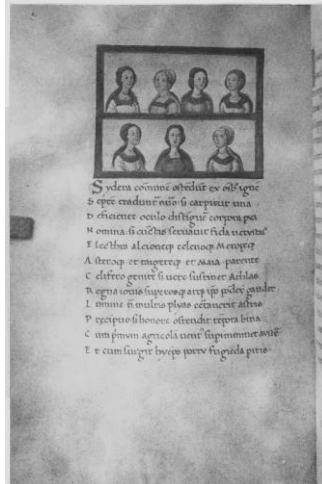 Sydera comune ostedut ex oib' igne
Septe tradunt nuo si carpitur una
Deficienet oculo distigue corpora
Nomina si cuctis servauit fida uetustas
Electra alcioneq celenoq Meropeq
Asteroq et taigeteq et Maia parente
Celifero genite si uere sustinet Athlas
Regna iouis superosq atq ipo podere gaudet
Lumine n multis plyas certauerit astris
Precipuo si honore ostendit tepora bina
Cum pmum agricola uent' supiminet
Et cum surgit hyeps portu fugieda